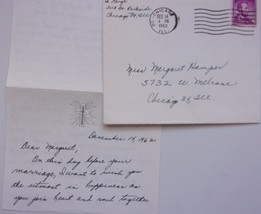 Chicago, Ill.
CHICAGO
ILL.
1962
Miss Margaret
5732 W. Melrose
Chicago 34, Ill.
December 14, 1962
Dear Margaret,
On this day before your
marriage, I want to wish you
the utmost in happiness as
you join heart and soul together